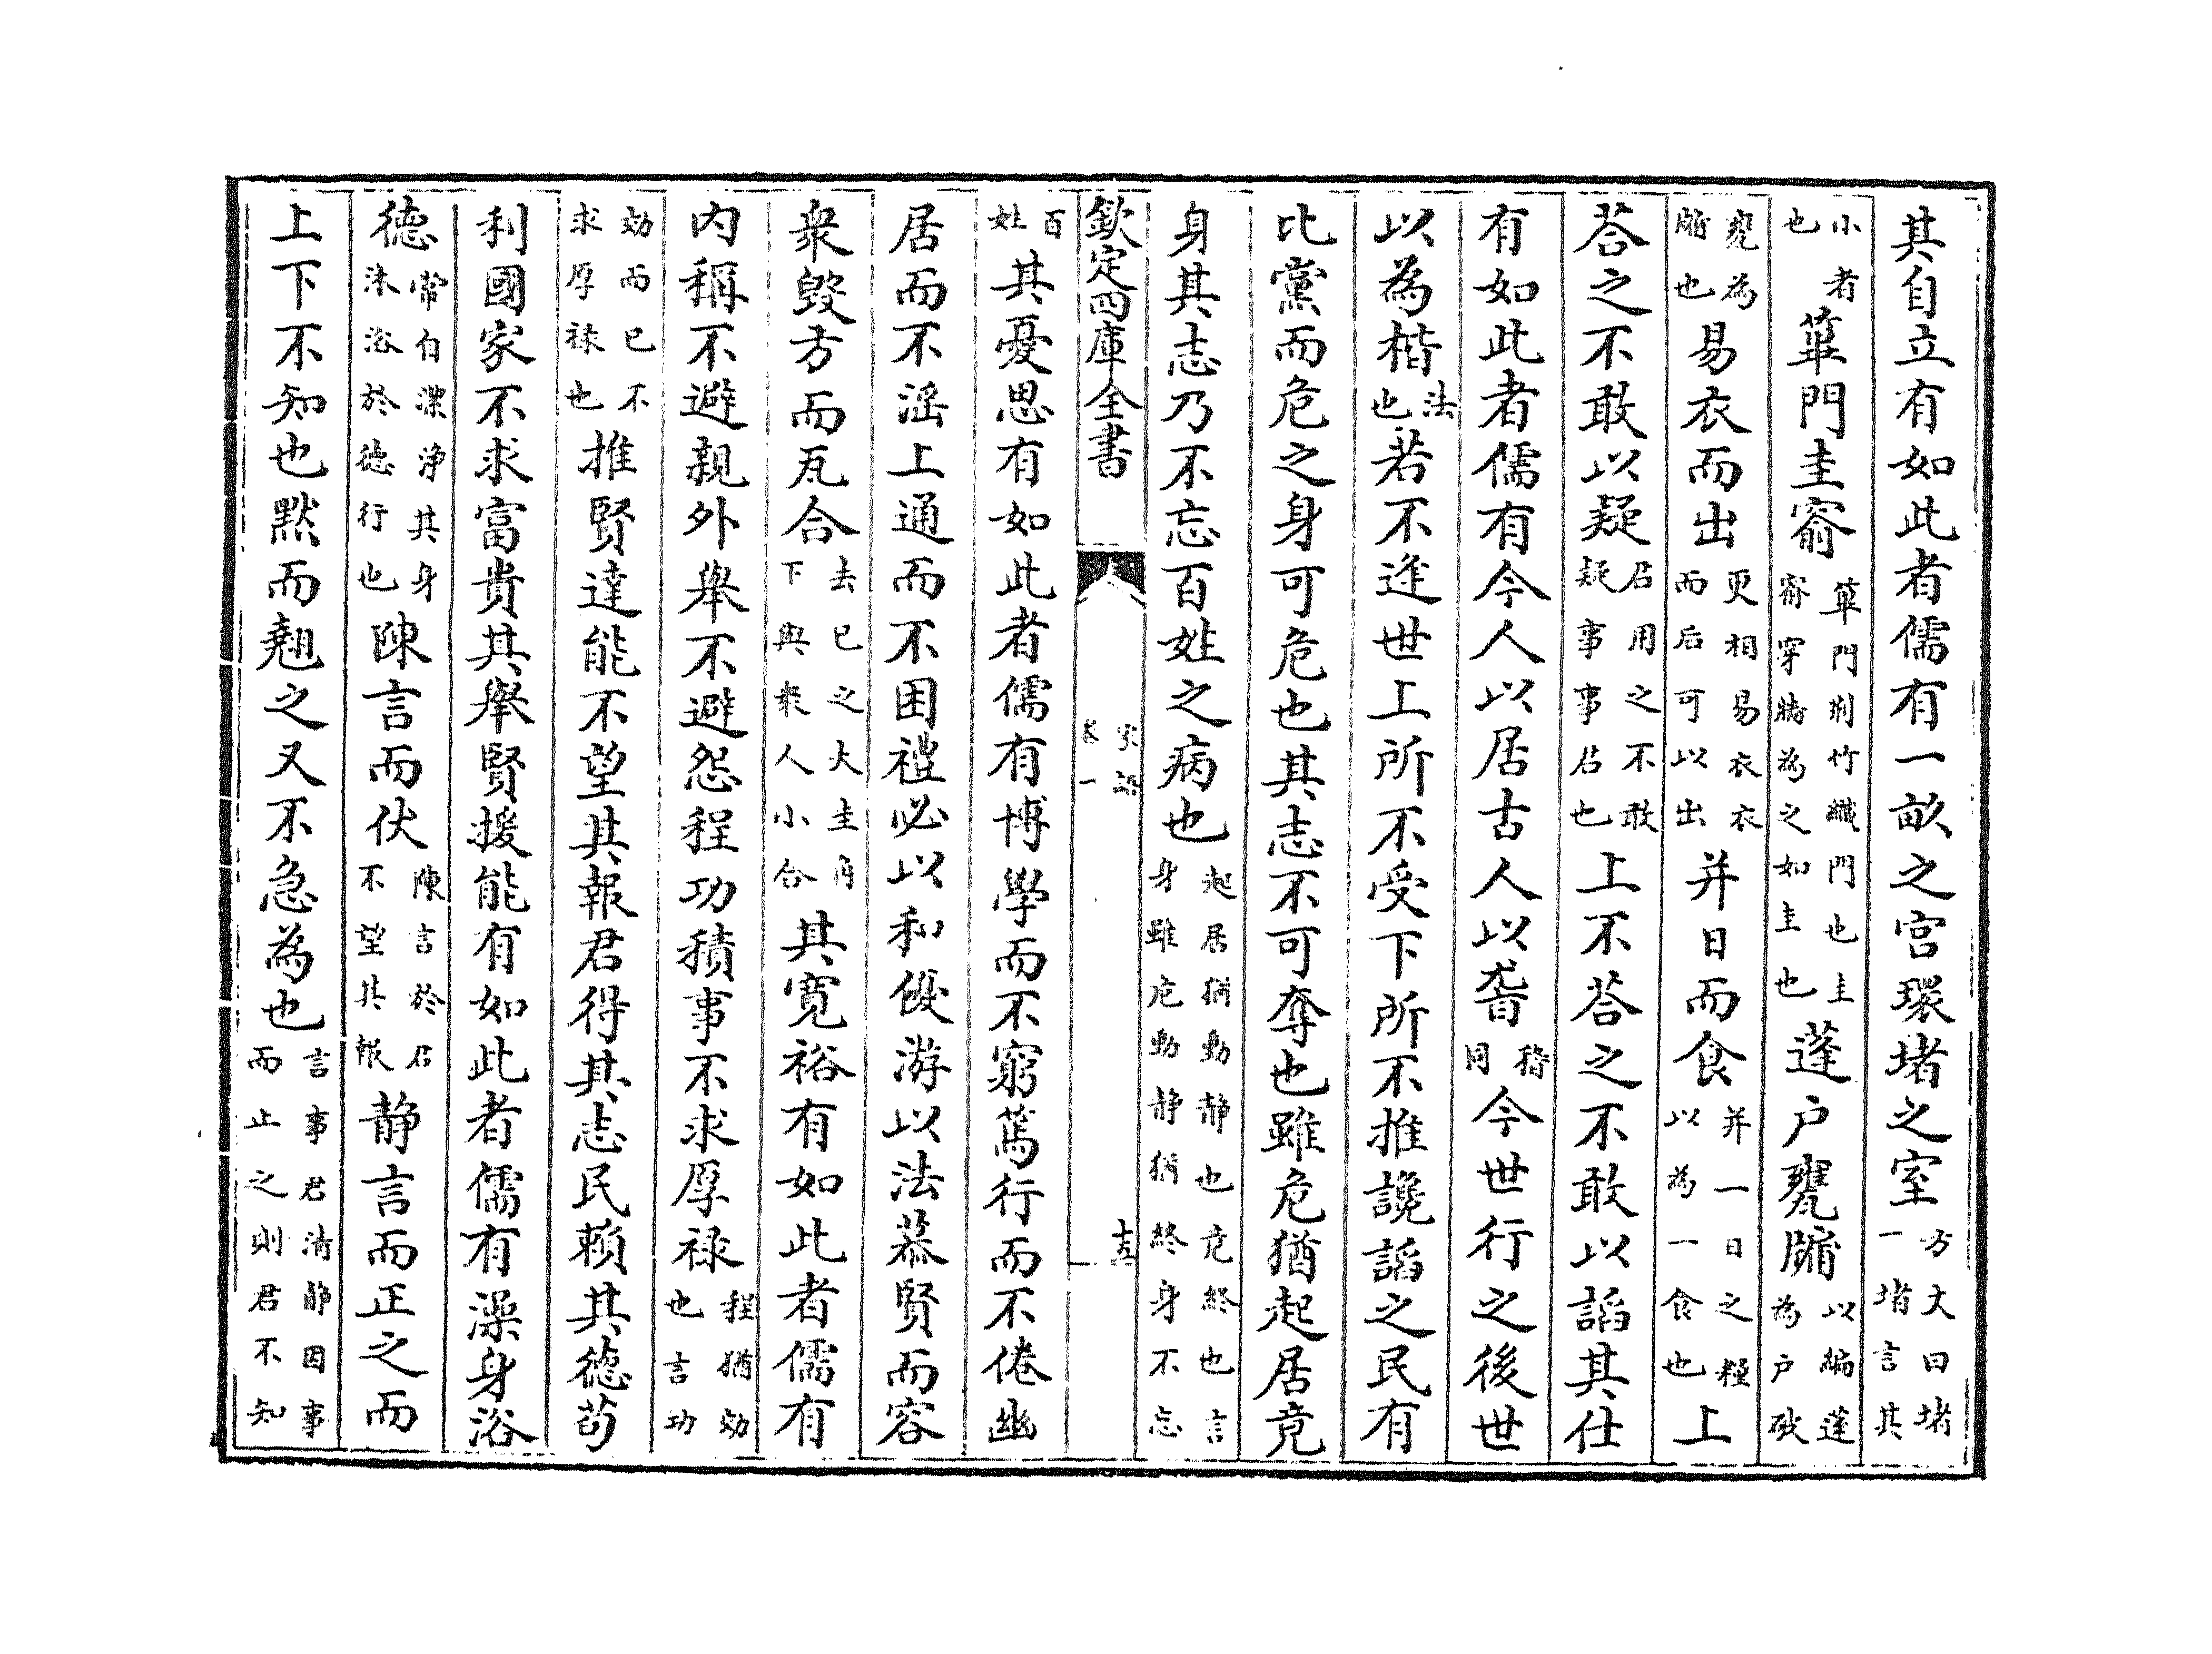 其自立有如此者儒有一畝之宫環堵之室方丈曰堵一堵言其
小者也篳門圭窬篳門荆竹織門也圭窬穿牆為之如圭也蓬户甕牖以編蓬為户破
甕為牖也易衣而出更相易衣衣而后可以出并日而食并一日之糧以為一食也上
荅之不敢以疑君用之不敢疑事事君也上不荅之不敢以謟其仕
有如此者儒有今人以居古人以㫶稽同今世行之後世
以為楷法也若不逢世上所不受下所不推讒謟之民有
比黨而危之身可危也其志不可奪也雖危猶起居竟
身其志乃不忘百姓之病也起居猶動静也竟終也言身雖危動静猶終身不忘
欽定四庫全書 家語卷一 十五
百姓其憂思有如此者儒有博學而不窮篤行而不倦幽
居而不滛上通而不困禮必以和優游以法慕賢而容
衆毁方而瓦合去已之大圭角下與衆人小合其寛裕有如此者儒有
内稱不避親外舉不避怨程功積事不求厚禄程猶効也言功
効而已不求厚禄也推賢達能不望其報君得其志民賴其德苟
利國家不求富貴其舉賢援能有如此者儒有澡身浴
德常自潔净其身沐浴於德行也陳言而伏陳言於君不望其報静言而正之而
上下不知也黙而翹之又不急為也言事君清静因事而止之則君不知